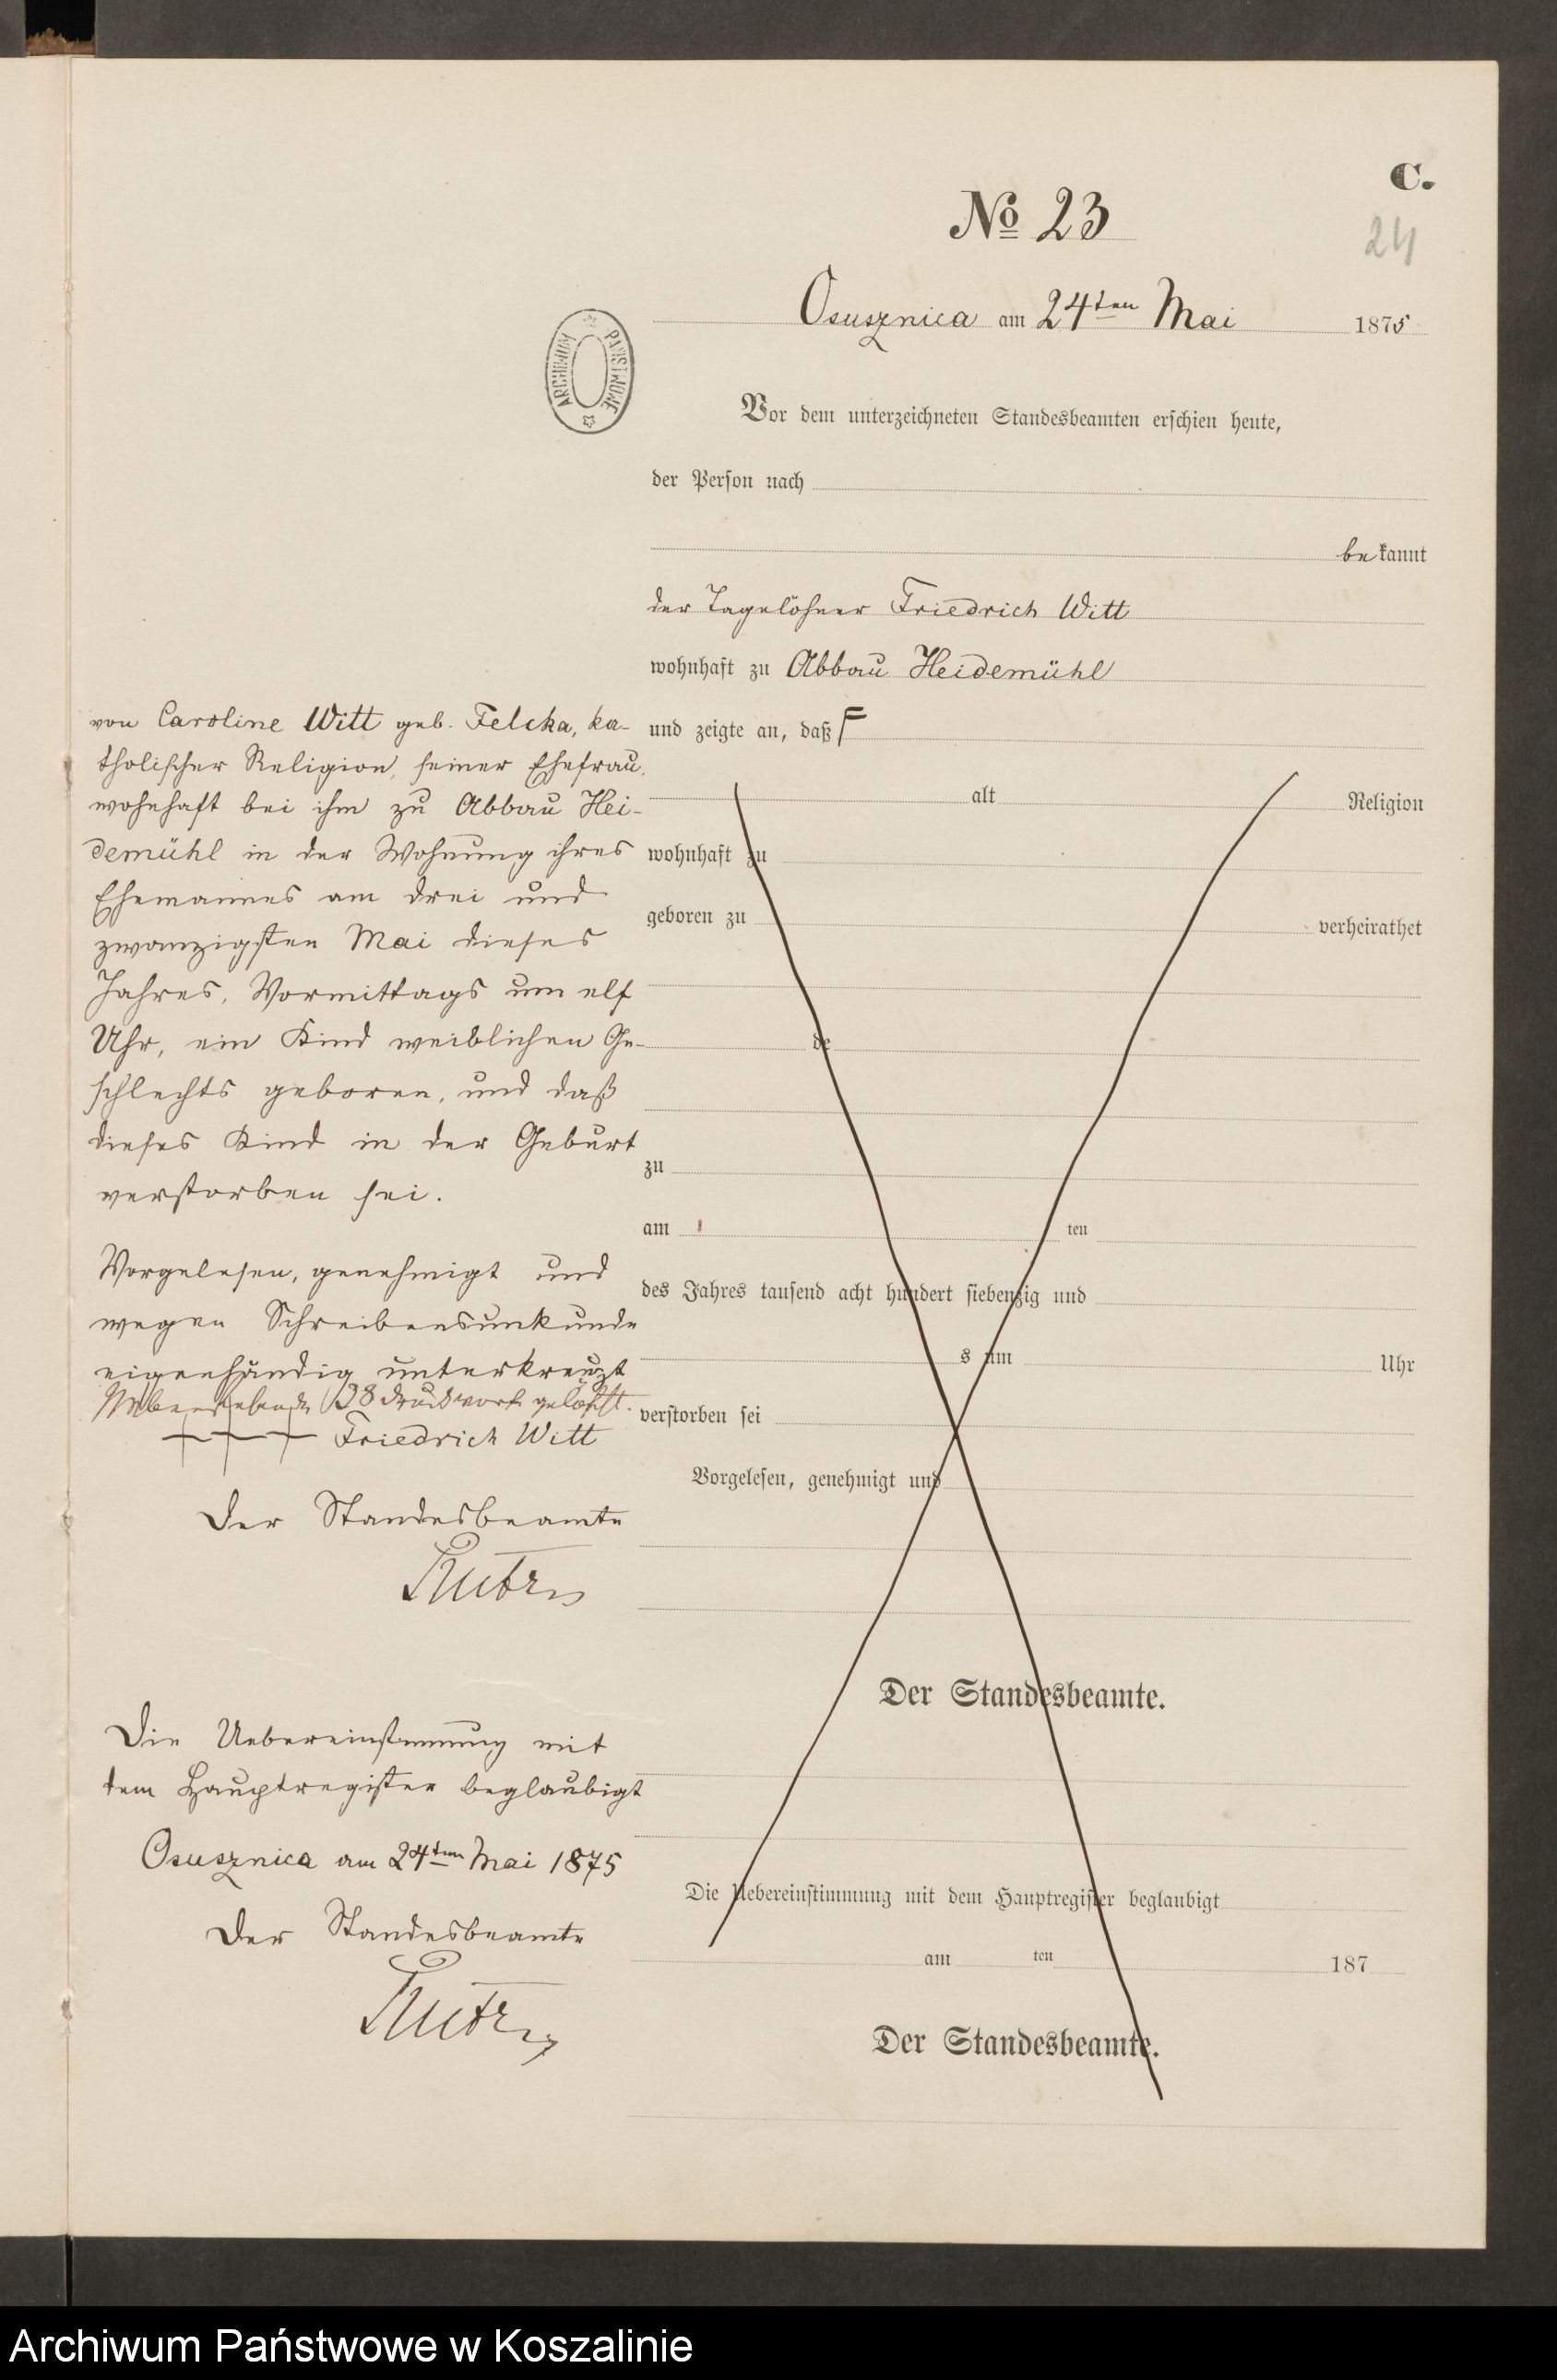 C.
No 23
24
Osusznica am 24ten Mai 1875
ARCHIWUM PAŃSTWOWE
Vor dem unterzeichneten Standesbeamten erschien heute,
der Person nach
bekannt
der Tagelöhner Friedrich Witt
wohnhaft zu Abbau Heidemühl
und zeigte an, daß
von Caroline Witt geb. Felcka, ka-
tholischer Religion, seiner Ehefrau,
wohnhaft bei ihm zu Abbau Hei-
demühl in der Wohnung ihres
Ehemannes am drei und
zwanzigsten Mai dieses
Jahres, Vormittags um elf
Uhr, ein Kind weiblichen Ge-
schlechts geboren, und daß
dieses Kind in der Geburt
verstorben sei.
Vorgelesen, genehmigt und
wegen Schreibensunkunde
eigenhändig unterkreuzt
Nebenstehende 38 Druckworte gelöscht.
+++ Friedrich Witt
Der Standesbeamte
Die Uebereinstimmung mit
dem Hauptregister beglaubigt
Osusznica am 24ten Mai 1875
Der Standesbeamte
alt Religion
wohnhaft zu
geboren zu verheirathet
de
zu
am ten
des Jahres tausend acht hundert siebenzig und
s um Uhr
verstorben sei
Vorgelesen, genehmigt und
Der Standesbeamte.
Die Uebereinstimmung mit dem Hauptregister beglaubigt
am ten 187
Der Standesbeamte.
Archiwum Państwowe w Koszalinie